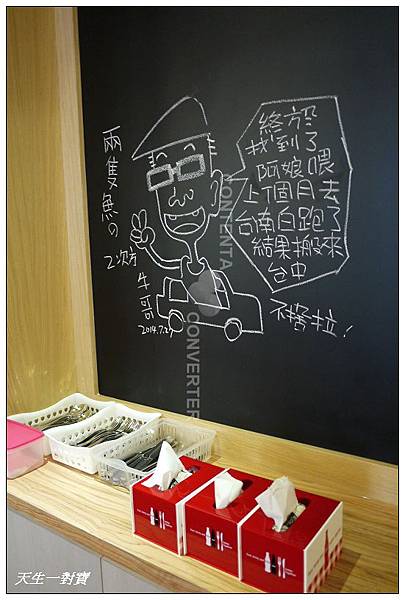 兩隻魚の
2次方
牛哥
2014.7.27
終於
找到了
阿娘喂
上個月去
台南白跑了
結果搬來
台中
不撘拉！
CONTENTA
CONVERTER
天生一對寶